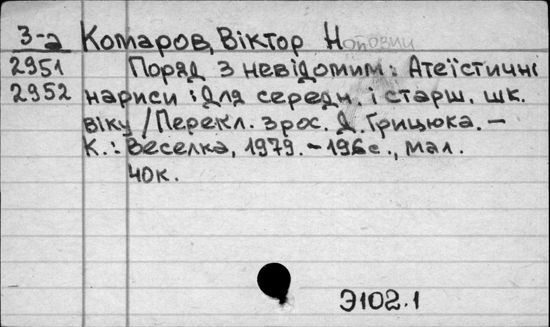 3-а Комаров, Віктор Ноовии
2951 Поряд з невідомим: Атеїстичні
2952 нариси: Для середн. і старш. шк.
віку / Перекл. з рос. Д. Грицюка. –
К.: Веселка, 1979. – 196 с., мал.
40к.
Э102.1